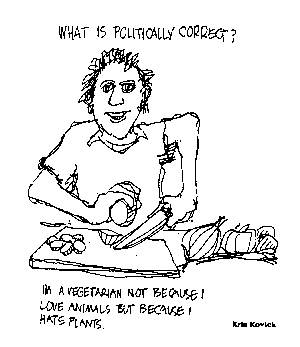 WHAT IS POLITICALLY CORRECT?
I'M A VEGETARIAN NOT BECAUSE I
LOVE ANIMALS BUT BECAUSE I
HATE PLANTS.
Kris Kovick